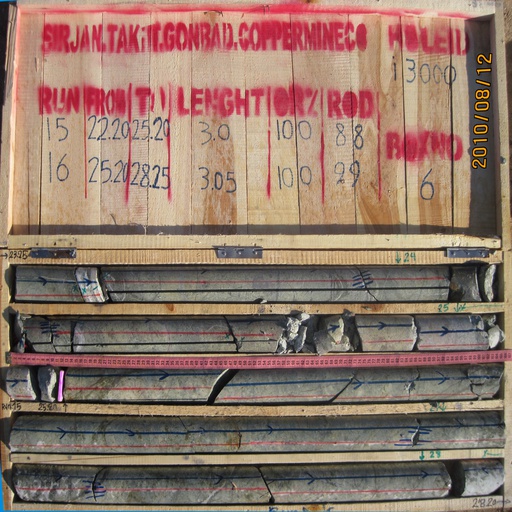 SIRJAN.TAKHT.GONBAD.COPPERMINECO HOLE ID
13000
RUN FROM TO LENGHT CR% RQD
15 22.20 25.20 3.0 100 88
BOXNO
16 25.20 28.25 3.05 100 29
6
2010/08/12
24
25
28
28.20